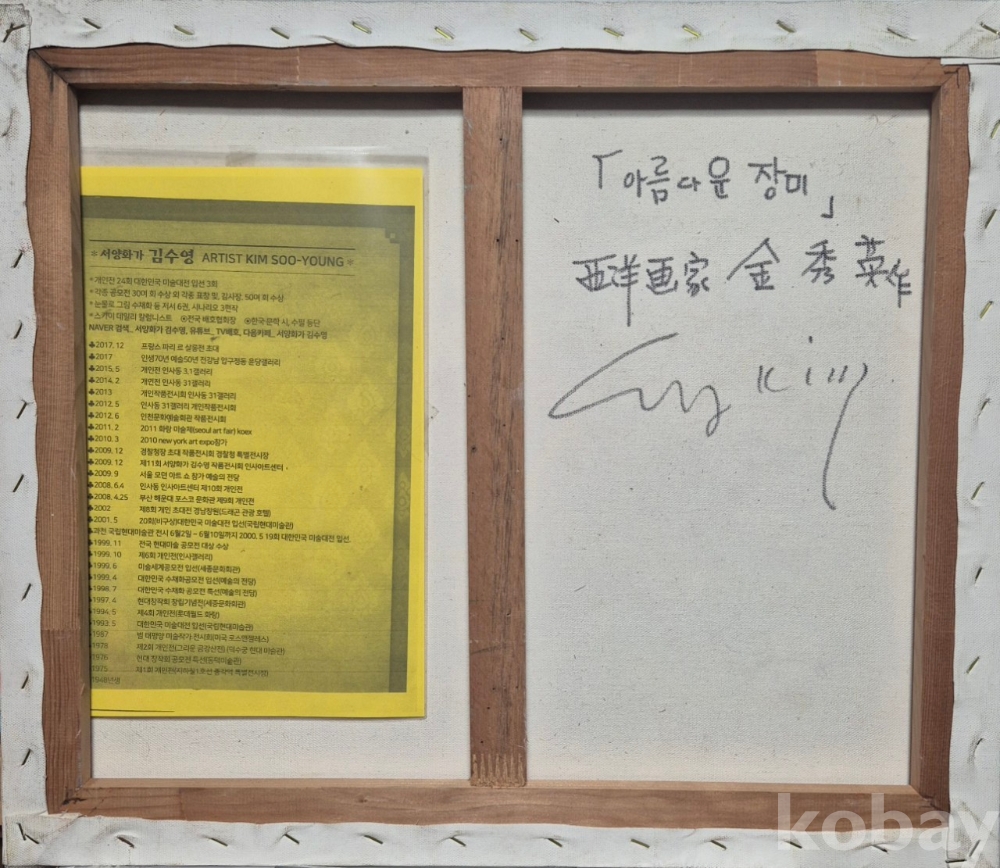 * 서양화가 김수영 ARTIST KIM SOO-YOUNG *
* 개인전 24회 대한민국 미술대전 입선 3회
* 각종 공모전 30여 회 수상 외 각종 표창 및, 감사장, 50여 회 수상
* 눈물로 그린 수채화 등 저서 6권, 시나리오 3편작
* 스카이 데일리 칼럼니스트 ◉전국 배호협회장 ◉한국문학 시, 수필 등단
NAVER 검색_ 서양화가 김수영, 유튜브_ TV배호, 다음카페_ 서양화가 김수영
♣2017. 12 프랑스 파리 르 살롱전 초대
♣2017 인생70년 예술50년 전강남 압구정동 윤당갤러리
♣2015. 5 개인전 인사동 3.1갤러리
♣2014. 2 개인전 인사동 31갤러리
♣2013 개인작품전시회 인사동 31갤러리
♣2012. 5 인사동 31갤러리 개인작품전시회
♣2012. 6 인천문화예술회관 작품전시회
♣2011. 2 2011 화랑 미술제(seoul art fair) koex
♣2010. 3 2010 new york art expo참가
♣2009. 12 경찰청장 초대 작품전시회 경찰청 특별전시장
♣2009. 12 제11회 서양화가 김수영 작품전시회 인사아트센터
♣2009. 9 서울 모던 아트 쇼 참가 예술의 전당
♣2008. 6.4 인사동 인사아트센터 제10회 개인전
♣2008. 4.25 부산 해운대 포스코 문화관 제9회 개인전
♣2002 제8회 개인 초대전 경남창원(드래곤 관광 호텔)
♣2001. 5 20회(비구상)대한민국 미술대전 입선(국립현대미술관)
♣과천 국립현대미술관 전시 6월2일 ~ 6월10일까지 2000. 5 19회 대한민국 미술대전 입선
♣1999. 11 전국 현대미술 공모전 대상 수상
♣1999. 10 제6회 개인전(인사갤러리)
♣1999. 6 미술세계공모전 입선(세종문화회관)
♣1999. 4 대한민국 수채화공모전 입선(예술의 전당)
♣1998. 7 대한민국 수채화 공모전 특선(예술의 전당)
♣1997. 4 현대창작회 창립기념전(세종문화회관)
♣1994. 5 제4회 개인전(롯데월드 화랑)
♣1993. 5 대한민국 미술대전 입선(국립현대미술관)
1987 별 태평양 미술작가 전시회(미국 로스앤젤레스)
1978 제2회 개인전(그리운 금강산전) (덕수궁 현대 미술관)
1976 현대 창작회 공모전 특선
1975 제1회 개인전
1948년생
「아름다운 장미」
西洋画家 金 秀 英作
Kim
kobay